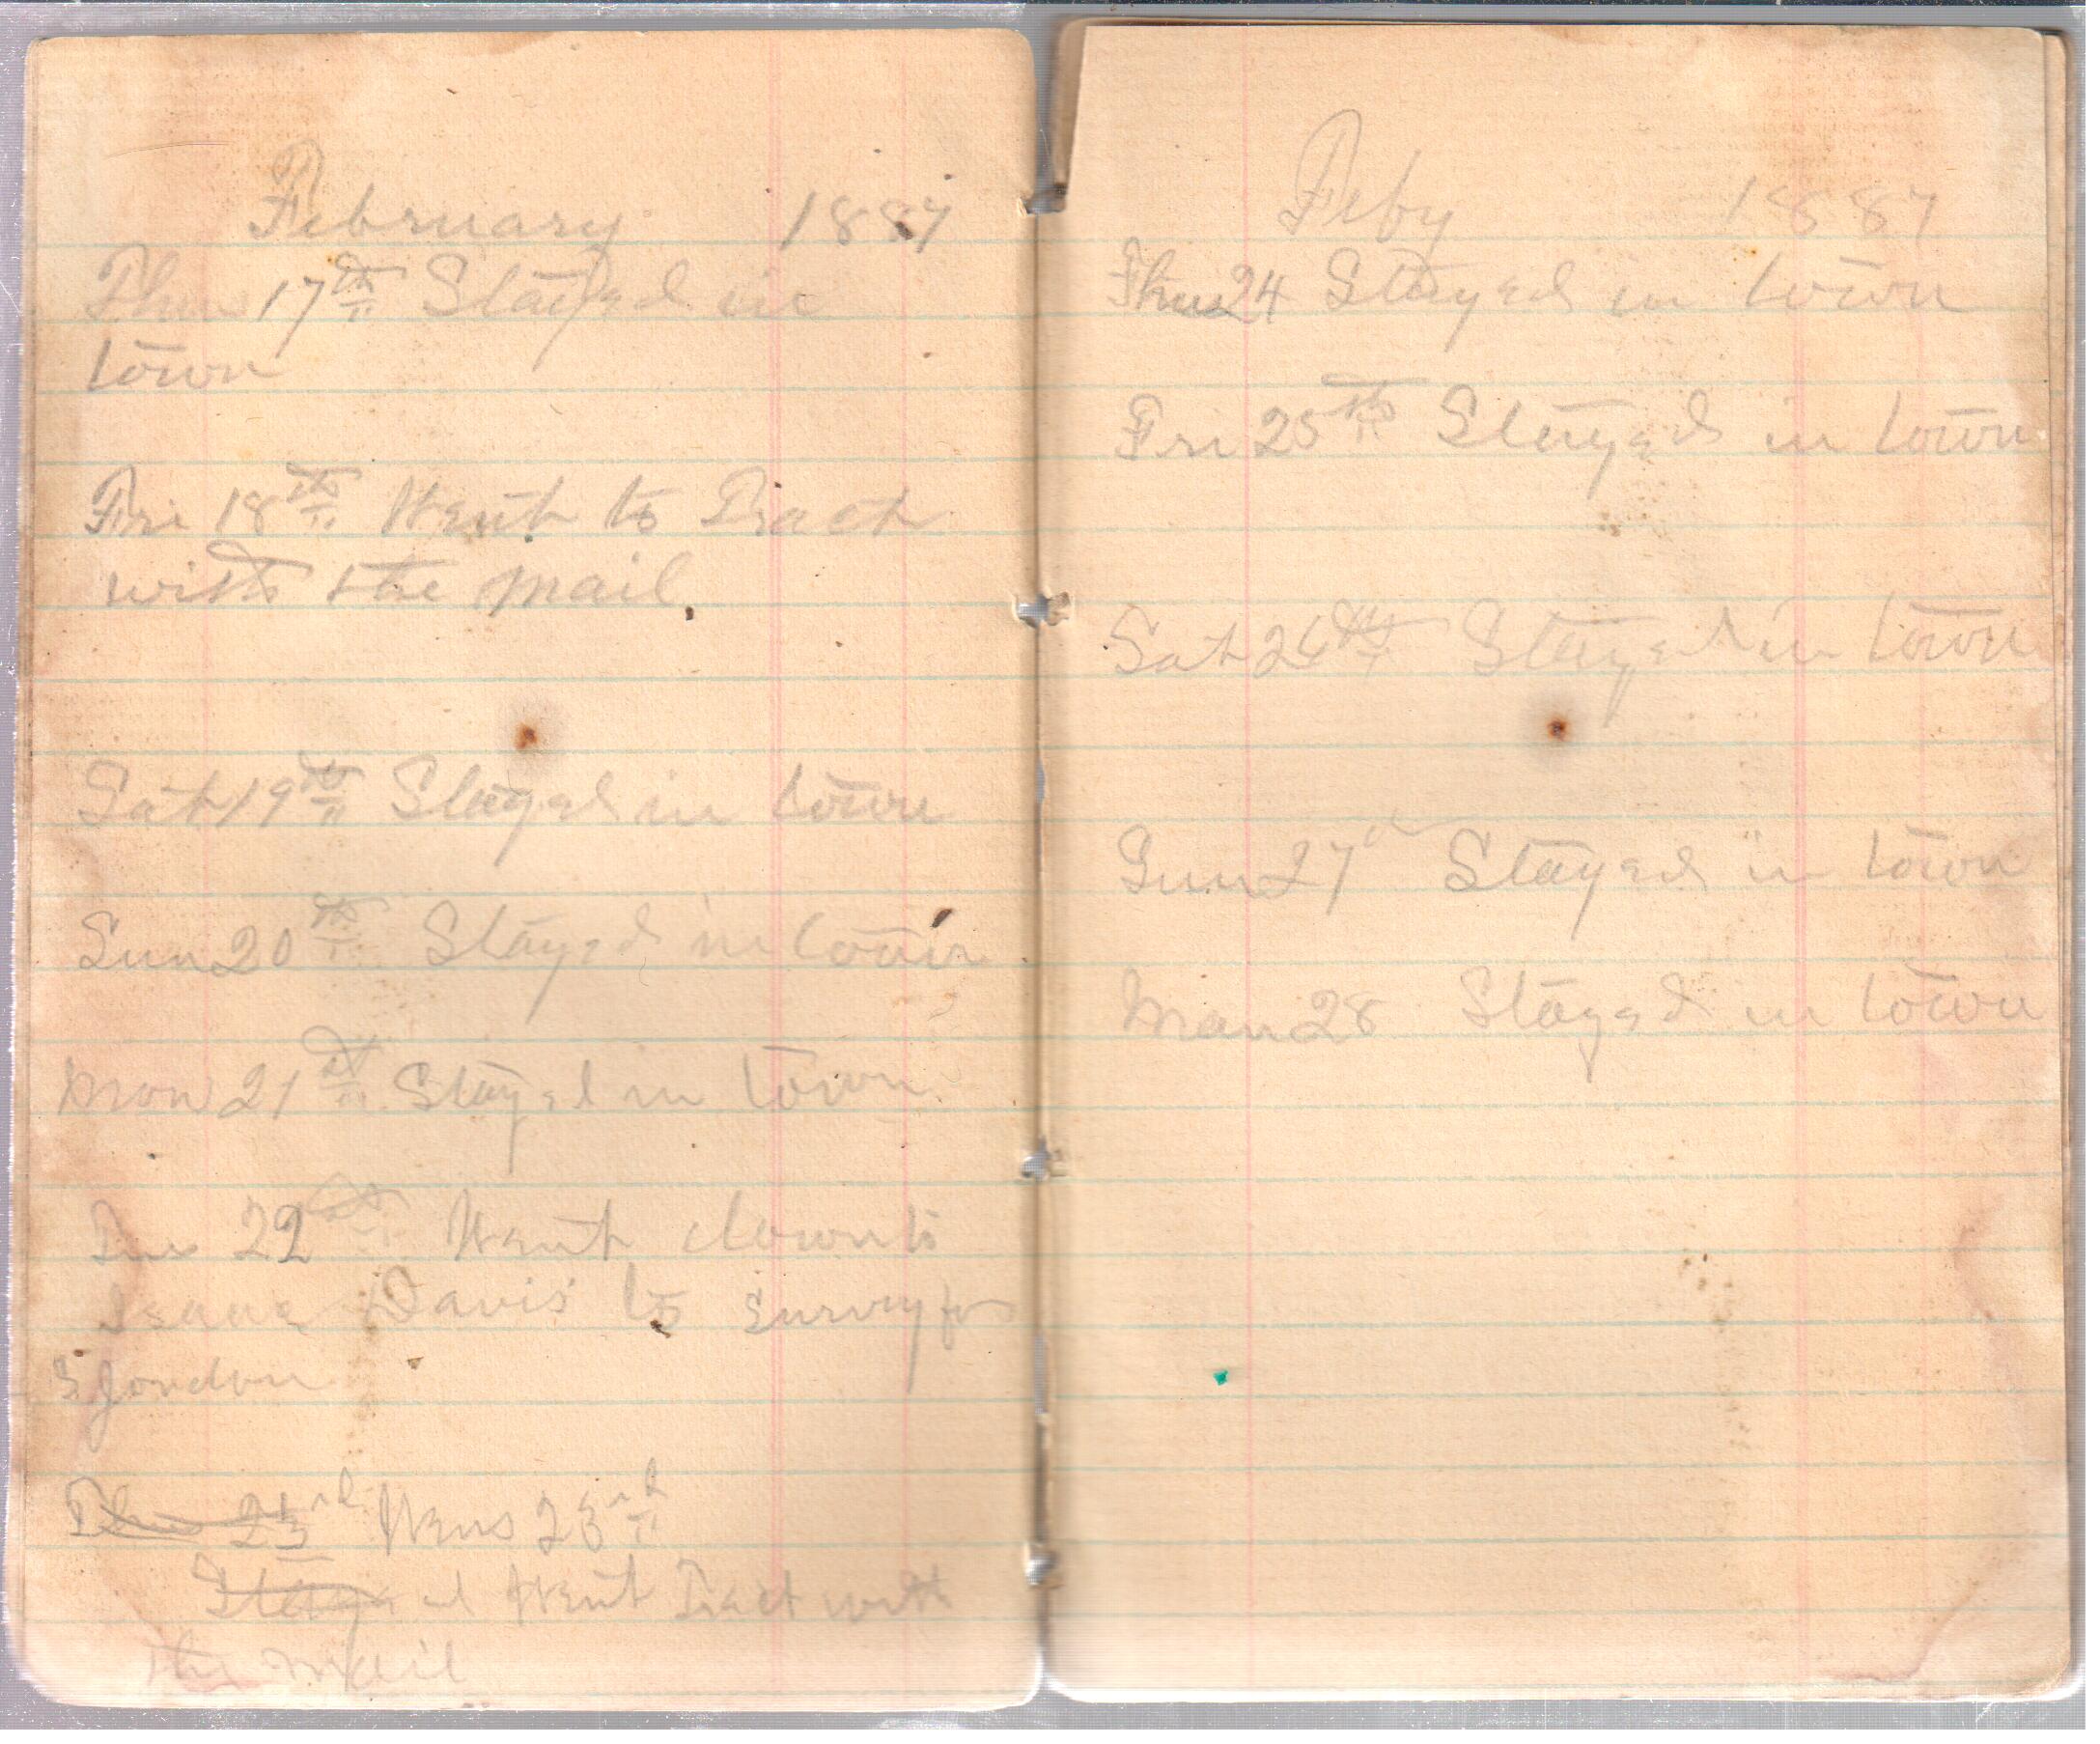 February 1887
Thurs 17th Stayed in
town
Fri 18th Went to Tract
with the mail.
Sat 19th Stayed in town
Sun 20th Stayed in town
Mon 21st Stayed in town
Tues 22 Went down to
Isaac Davis' to survey for
S Jordon
Thurs 23rd Wens 23rd
Stayed Went Tract with
the mail
Feby 1887
Thurs 24 Stayed in town
Fri 25th Stayed in town
Sat 26th Stayed in town
Sun 27th Stayed in town
Mon 28 Stayed in town